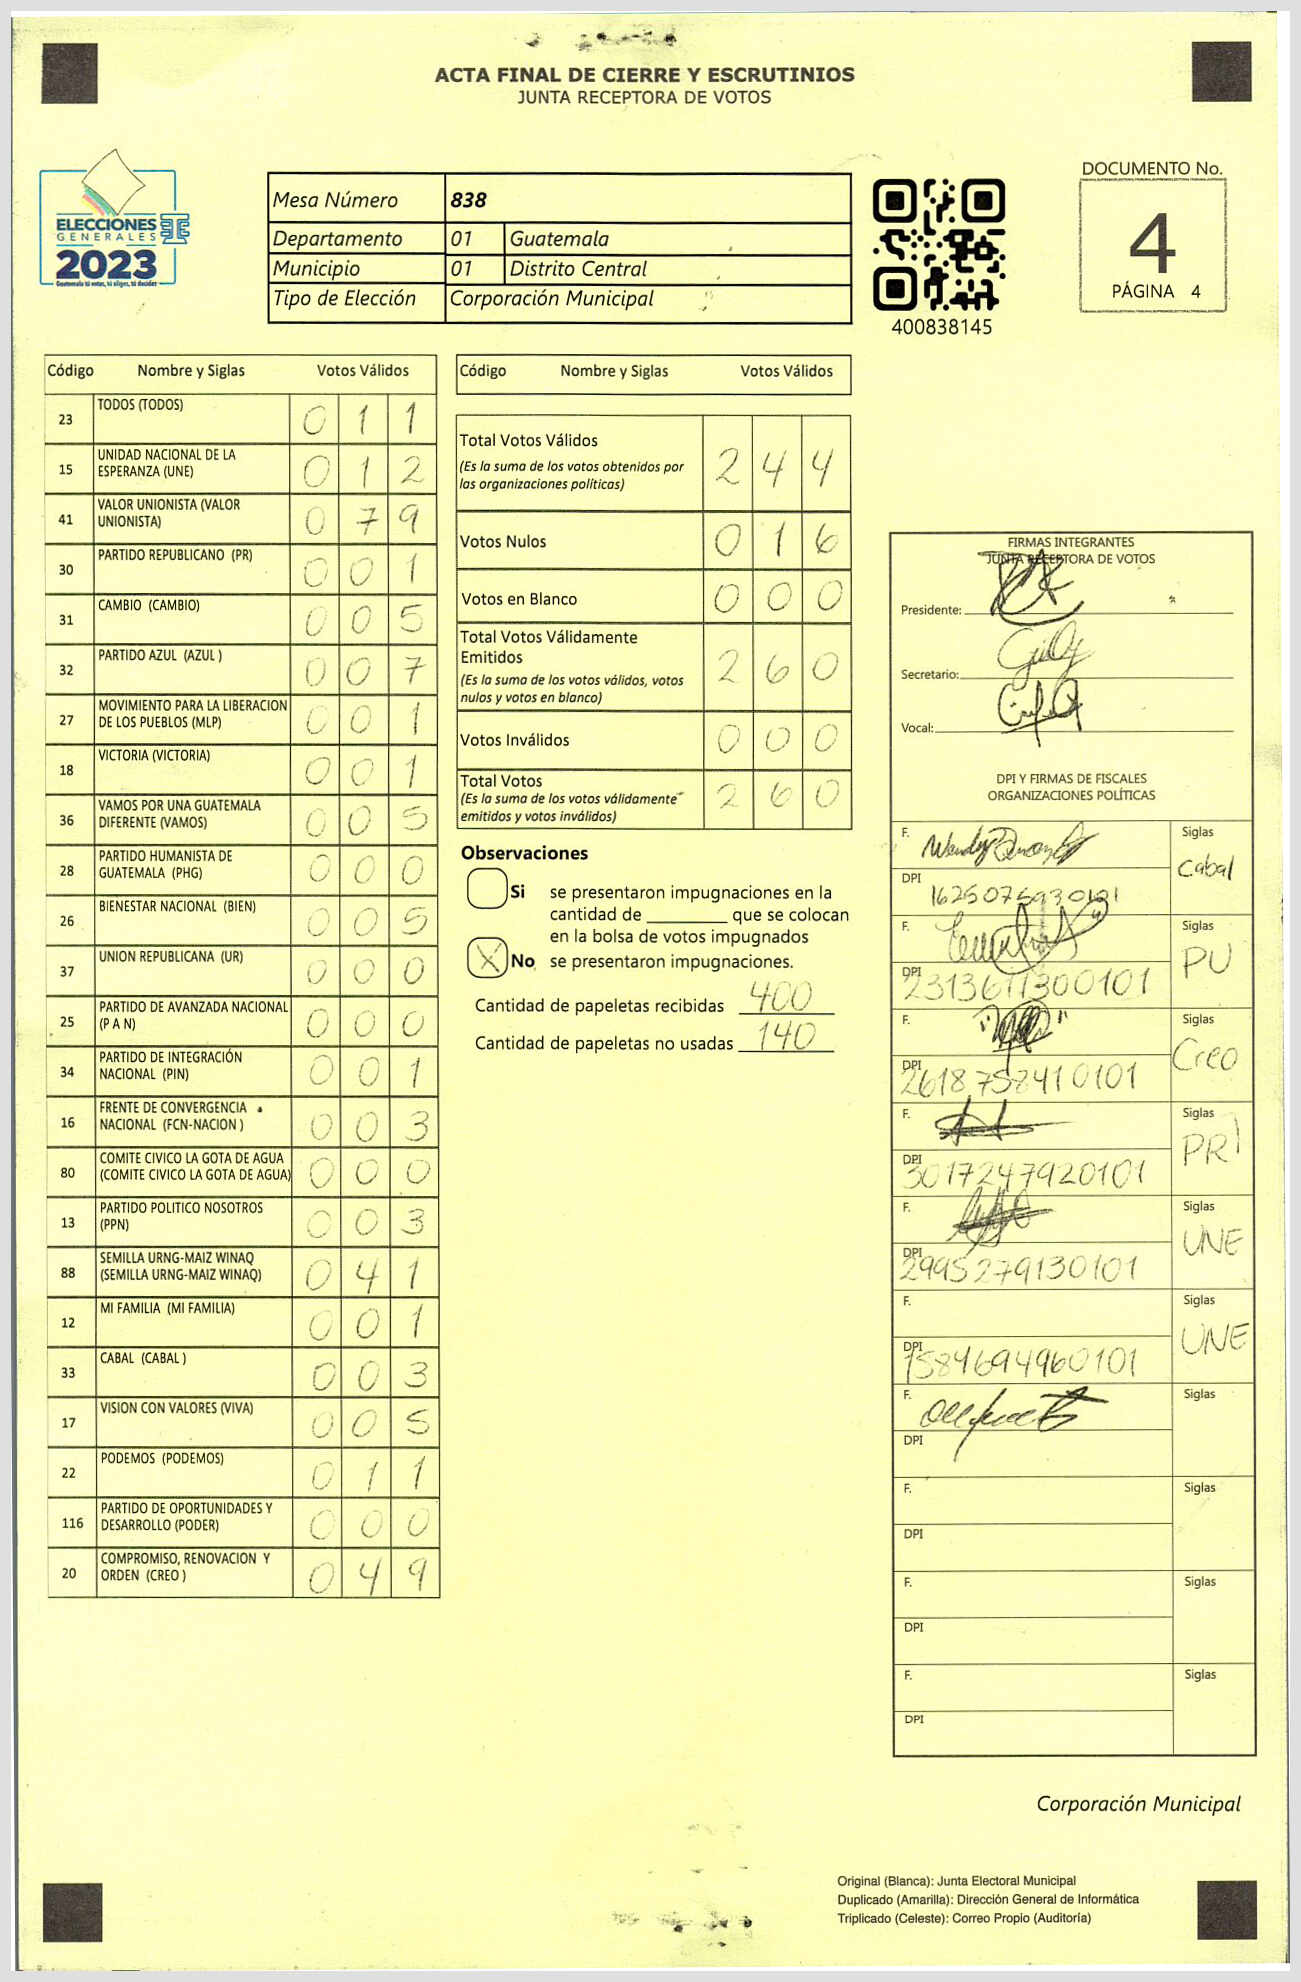 ACTA FINAL DE CIERRE Y ESCRUTINIOS
JUNTA RECEPTORA DE VOTOS
ELECCIONES
GENERALES
2023
Guatemala tú votas, tú eliges, tú decides
Mesa Número 838
Departamento 01 Guatemala
Municipio 01 Distrito Central
Tipo de Elección Corporación Municipal
400838145
DOCUMENTO No.
4
PÁGINA 4
Código Nombre y Siglas Votos Válidos
23 TODOS (TODOS) 0 1 1
15 UNIDAD NACIONAL DE LA
ESPERANZA (UNE) 0 1 2
41 VALOR UNIONISTA (VALOR
UNIONISTA) 0 7 9
30 PARTIDO REPUBLICANO (PR) 0 0 1
31 CAMBIO (CAMBIO) 0 0 5
32 PARTIDO AZUL (AZUL ) 0 0 7
27 MOVIMIENTO PARA LA LIBERACION
DE LOS PUEBLOS (MLP) 0 0 1
18 VICTORIA (VICTORIA) 0 0 1
36 VAMOS POR UNA GUATEMALA
DIFERENTE (VAMOS) 0 0 5
28 PARTIDO HUMANISTA DE
GUATEMALA (PHG) 0 0 0
26 BIENESTAR NACIONAL (BIEN) 0 0 5
37 UNION REPUBLICANA (UR) 0 0 0
25 PARTIDO DE AVANZADA NACIONAL
(P A N) 0 0 0
34 PARTIDO DE INTEGRACIÓN
NACIONAL (PIN) 0 0 1
16 FRENTE DE CONVERGENCIA
NACIONAL (FCN-NACION ) 0 0 3
80 COMITE CIVICO LA GOTA DE AGUA
(COMITE CIVICO LA GOTA DE AGUA) 0 0 0
13 PARTIDO POLITICO NOSOTROS
(PPN) 0 0 3
88 SEMILLA URNG-MAIZ WINAQ
(SEMILLA URNG-MAIZ WINAQ) 0 4 1
12 MI FAMILIA (MI FAMILIA) 0 0 1
33 CABAL (CABAL ) 0 0 3
17 VISION CON VALORES (VIVA) 0 0 5
22 PODEMOS (PODEMOS) 0 1 1
116 PARTIDO DE OPORTUNIDADES Y
DESARROLLO (PODER) 0 0 0
20 COMPROMISO, RENOVACION Y
ORDEN (CREO ) 0 4 9
Código Nombre y Siglas Votos Válidos
Total Votos Válidos 2 4 4
(Es la suma de los votos obtenidos por
las organizaciones políticas)
Votos Nulos 0 1 6
Votos en Blanco 0 0 0
Total Votos Válidamente
Emitidos 2 6 0
(Es la suma de los votos válidos, votos
nulos y votos en blanco)
Votos Inválidos 0 0 0
Total Votos 2 6 0
(Es la suma de los votos válidamente
emitidos y votos inválidos)
Observaciones
Si se presentaron impugnaciones en la
cantidad de ________ que se colocan
en la bolsa de votos impugnados
X No se presentaron impugnaciones.
Cantidad de papeletas recibidas 400
Cantidad de papeletas no usadas 140
FIRMAS INTEGRANTES
JUNTA RECEPTORA DE VOTOS
Presidente:
Secretario:
Vocal:
DPI Y FIRMAS DE FISCALES
ORGANIZACIONES POLÍTICAS
F. Siglas
Cabal
DPI
F. Siglas
PU
DPI 2313611300101
F. Siglas
Creo
DPI 2618758410101
F. Siglas
PR
DPI 3017247920101
F. Siglas
UNE
DPI 2995279130101
F. Siglas
UNE
DPI 1584694960101
F. Siglas
DPI
F. Siglas
DPI
F. Siglas
DPI
F. Siglas
DPI
Corporación Municipal
Original (Blanca): Junta Electoral Municipal
Duplicado (Amarilla): Dirección General de Informática
Triplicado (Celeste): Correo Propio (Auditoría)